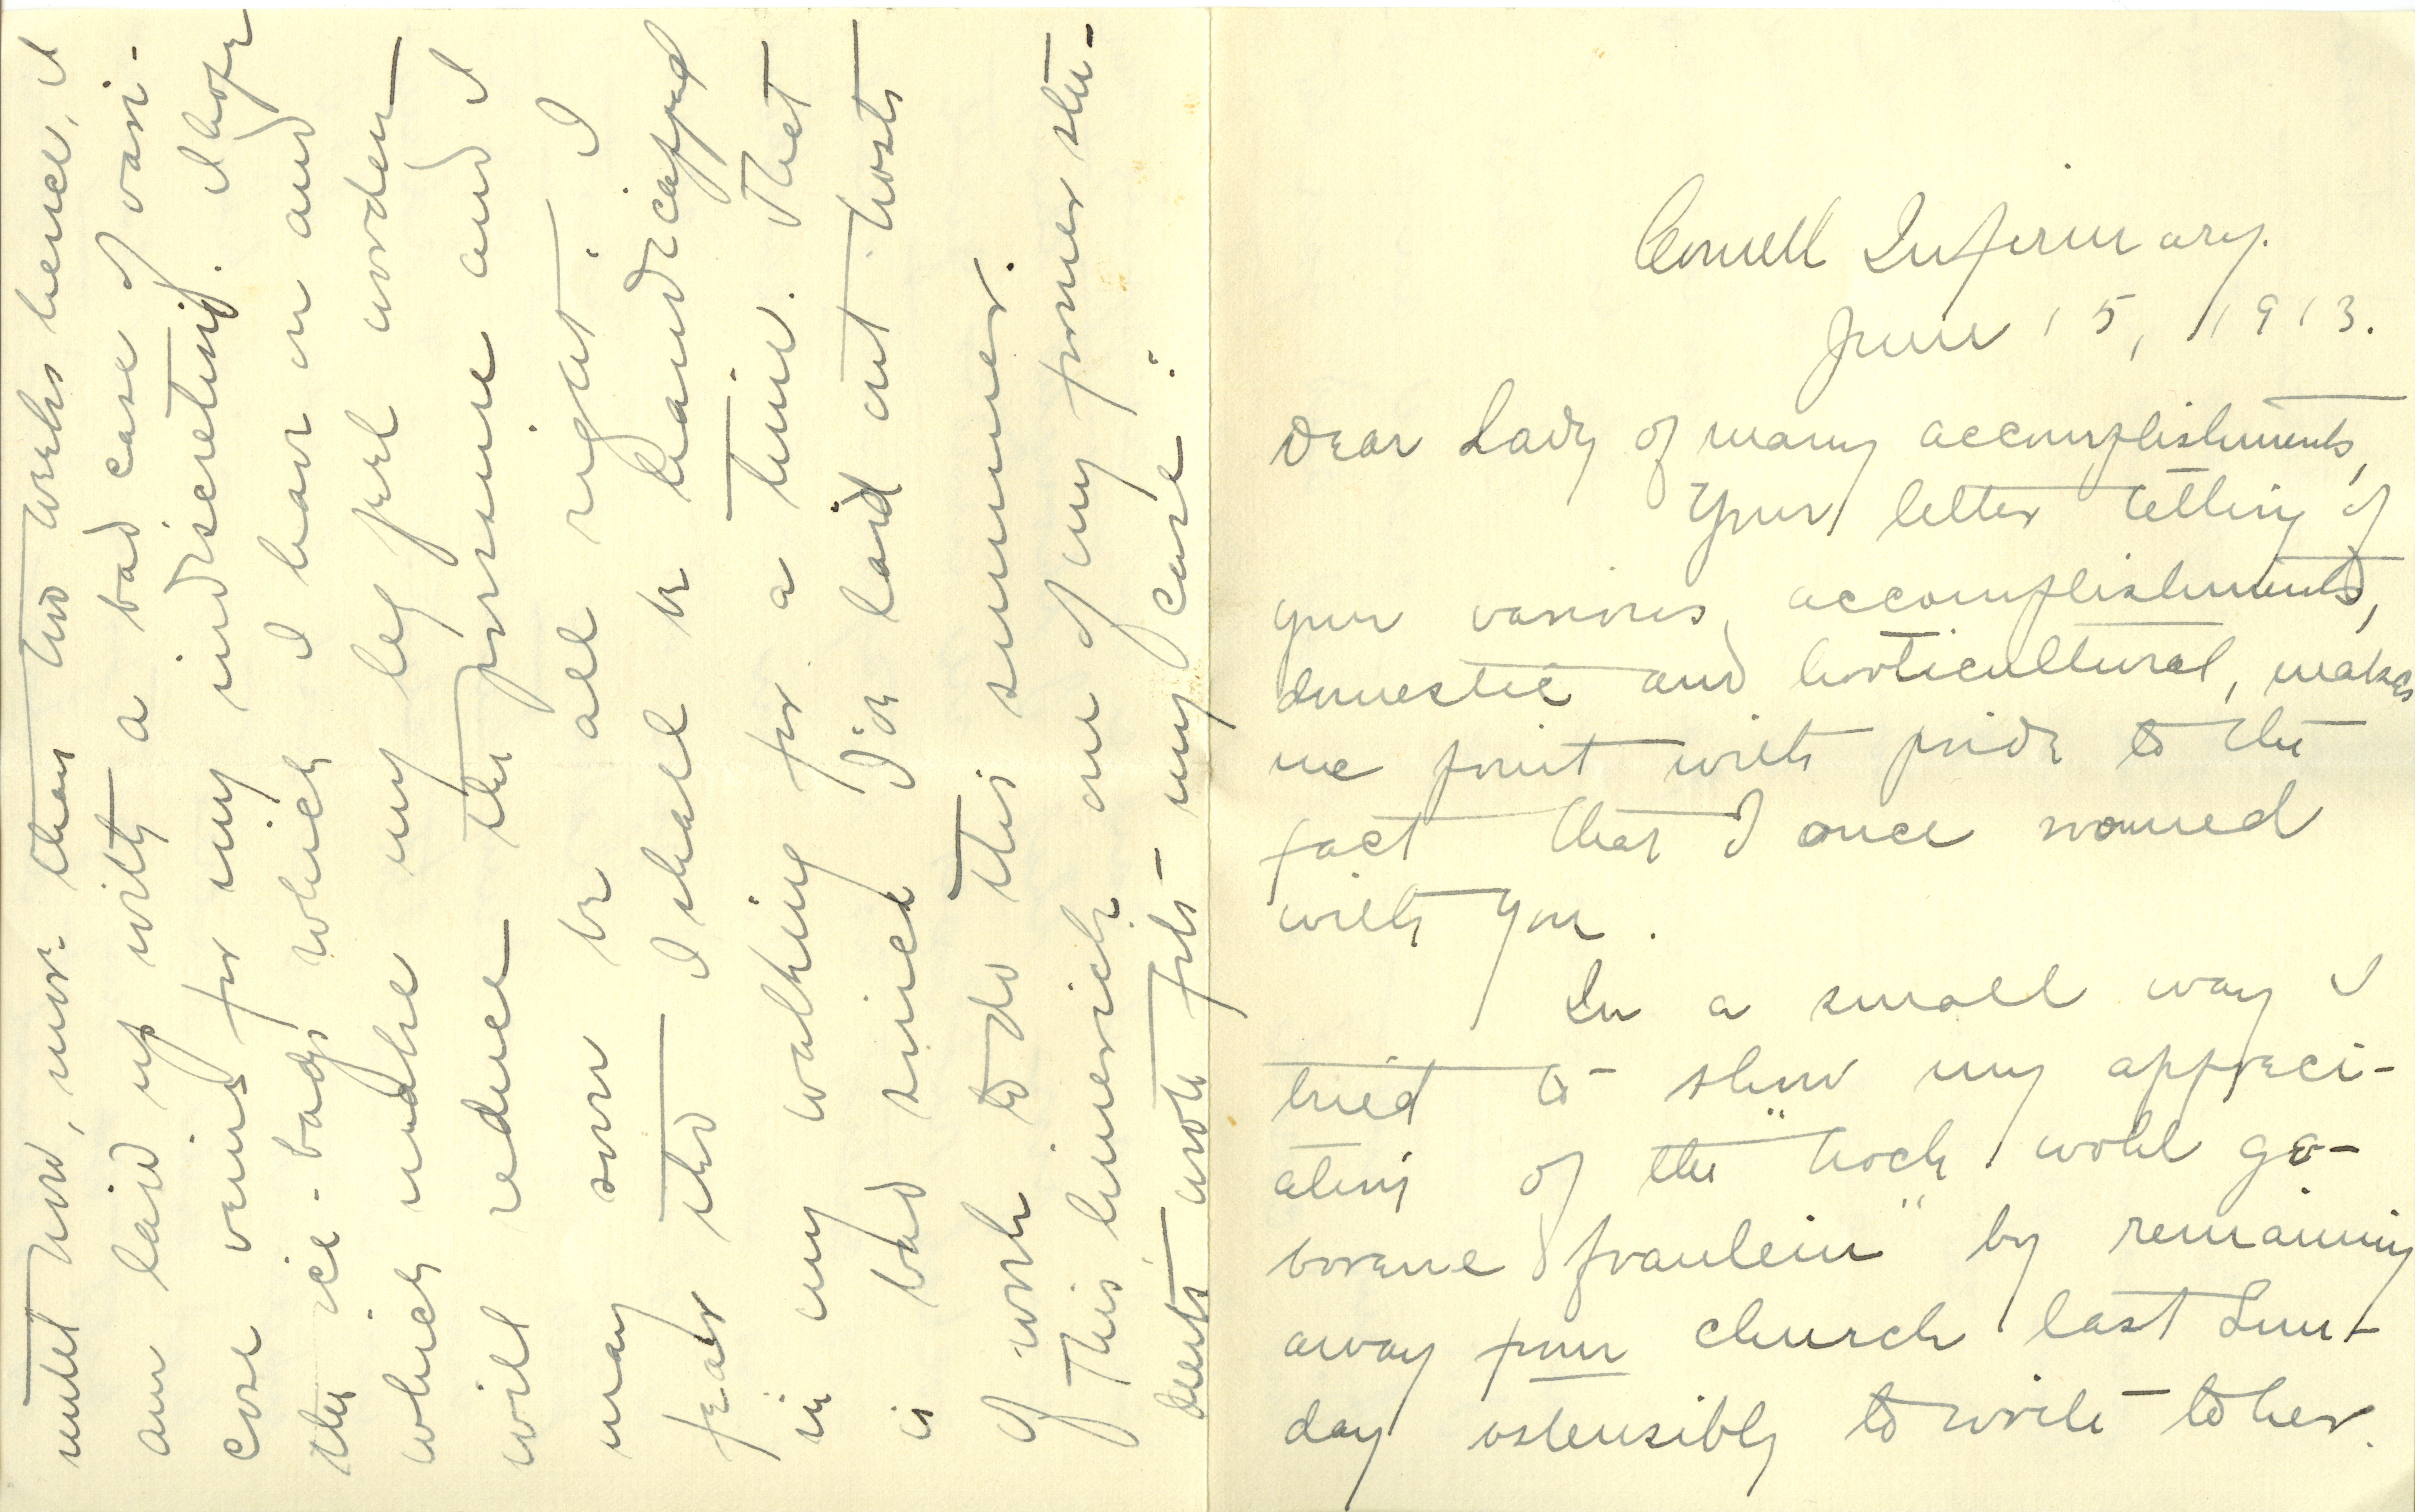 Cornell Infirmary.
June 15, 1913.
Dear Lady of many accomplishments,
Your letter telling of
your various accomplishments,
domestic and horticultural, makes
me point with pride to the
fact that I once roomed
with you.
In a small way I
tried to show my appreci-
ation of the "hoch wohl ge-
borene fraulein" by remaining
away from church last Sun-
day ostensibly to write to her.
until now, more than two weeks hence, I
am laid up with a bad case of vari-
cose veins for my indiscretion. I hope
the ice-bags which I hear on and
which make my leg feel wooden
will reduce the pressure and I
may soon be all right. I
fear tho I shall be handicapped
in my walking for a time. That
is bad since I've laid out hosts
of work to do this summer.
This limerick one of my former stu-
dents wrote fits my case: